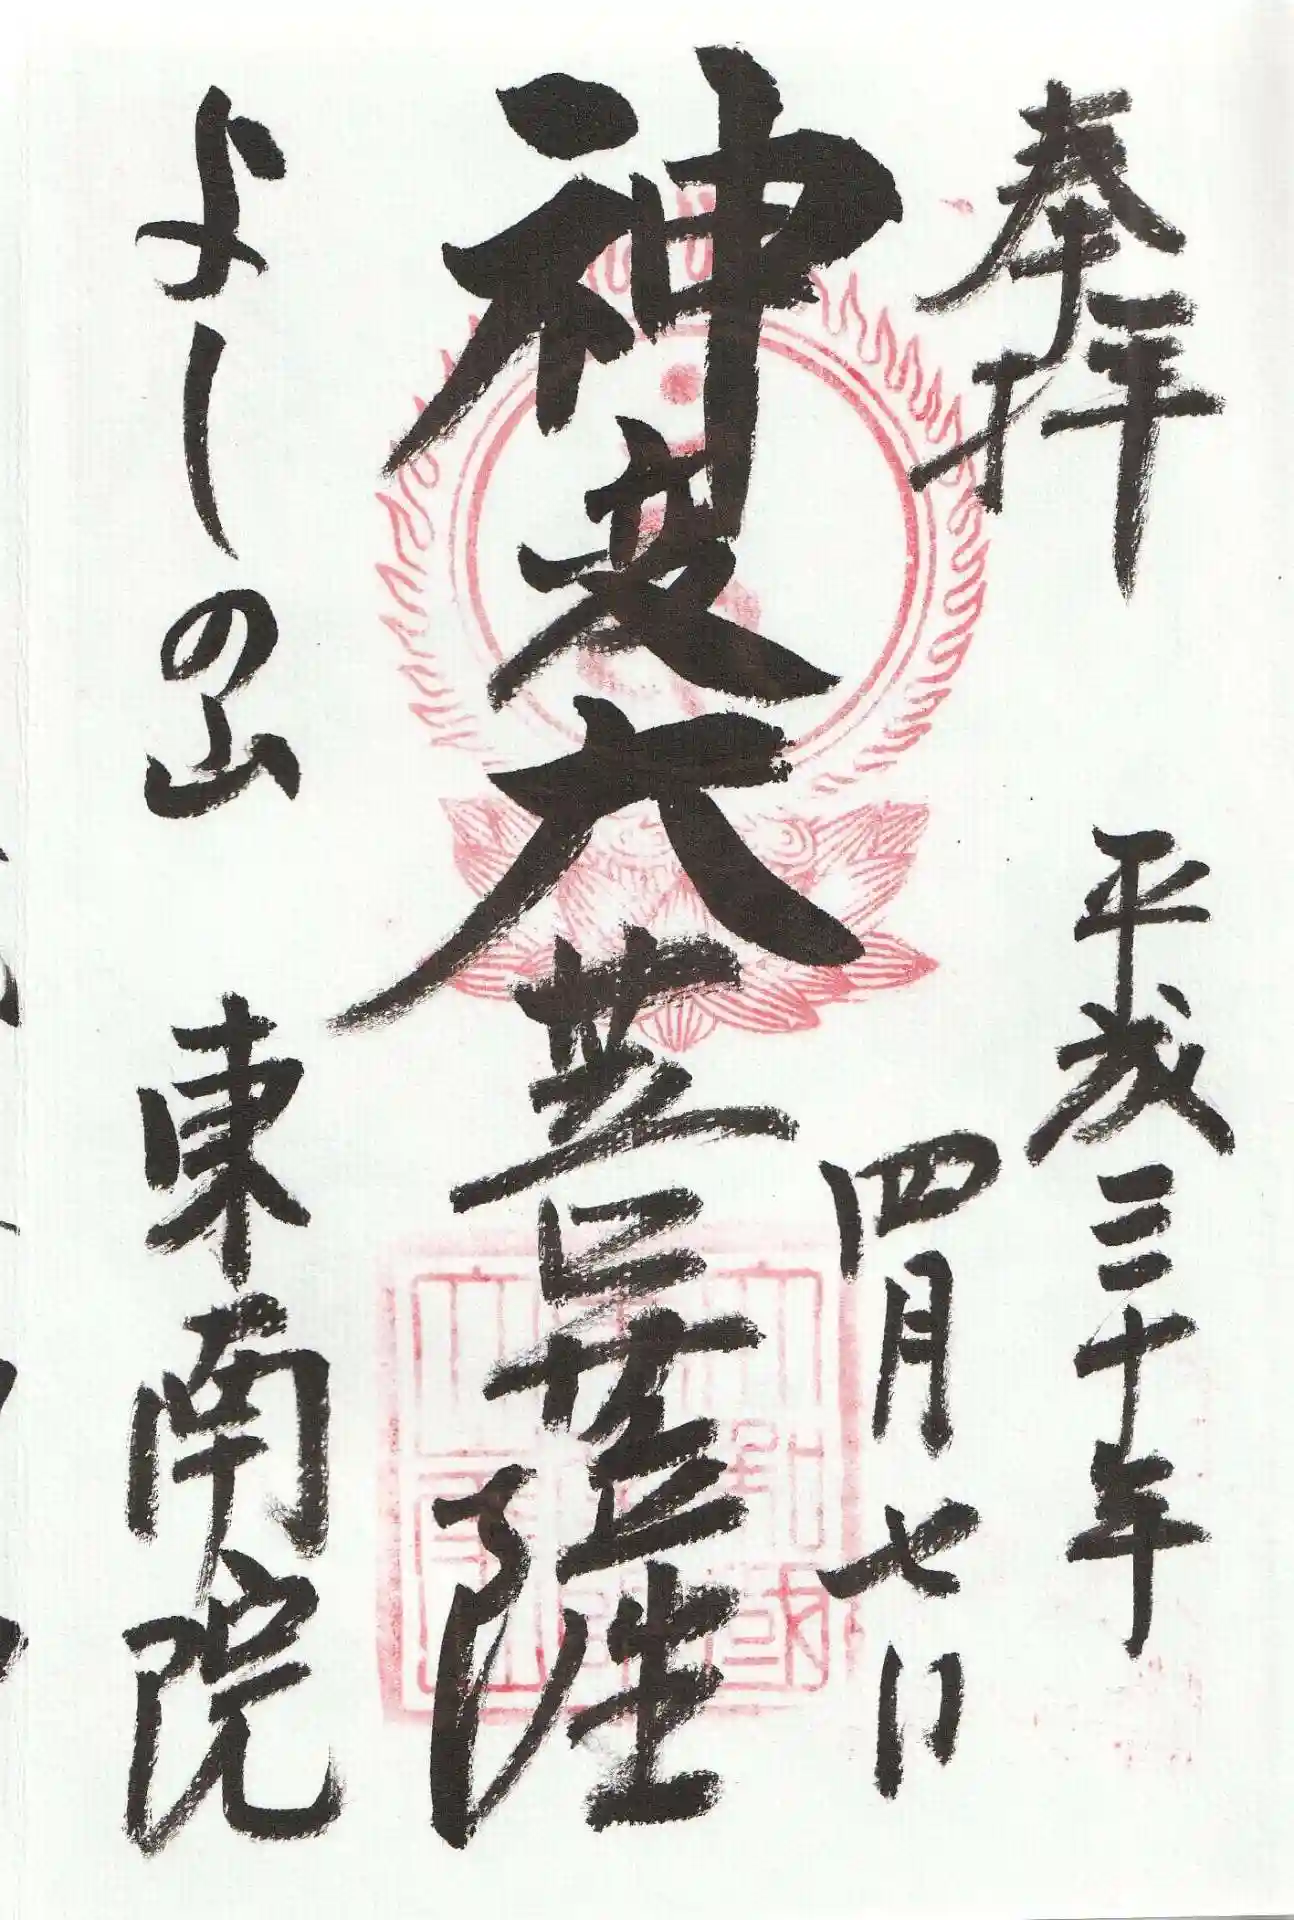 奉拝
平成三十年
四月七日
神変大菩薩
よしの山 東南院